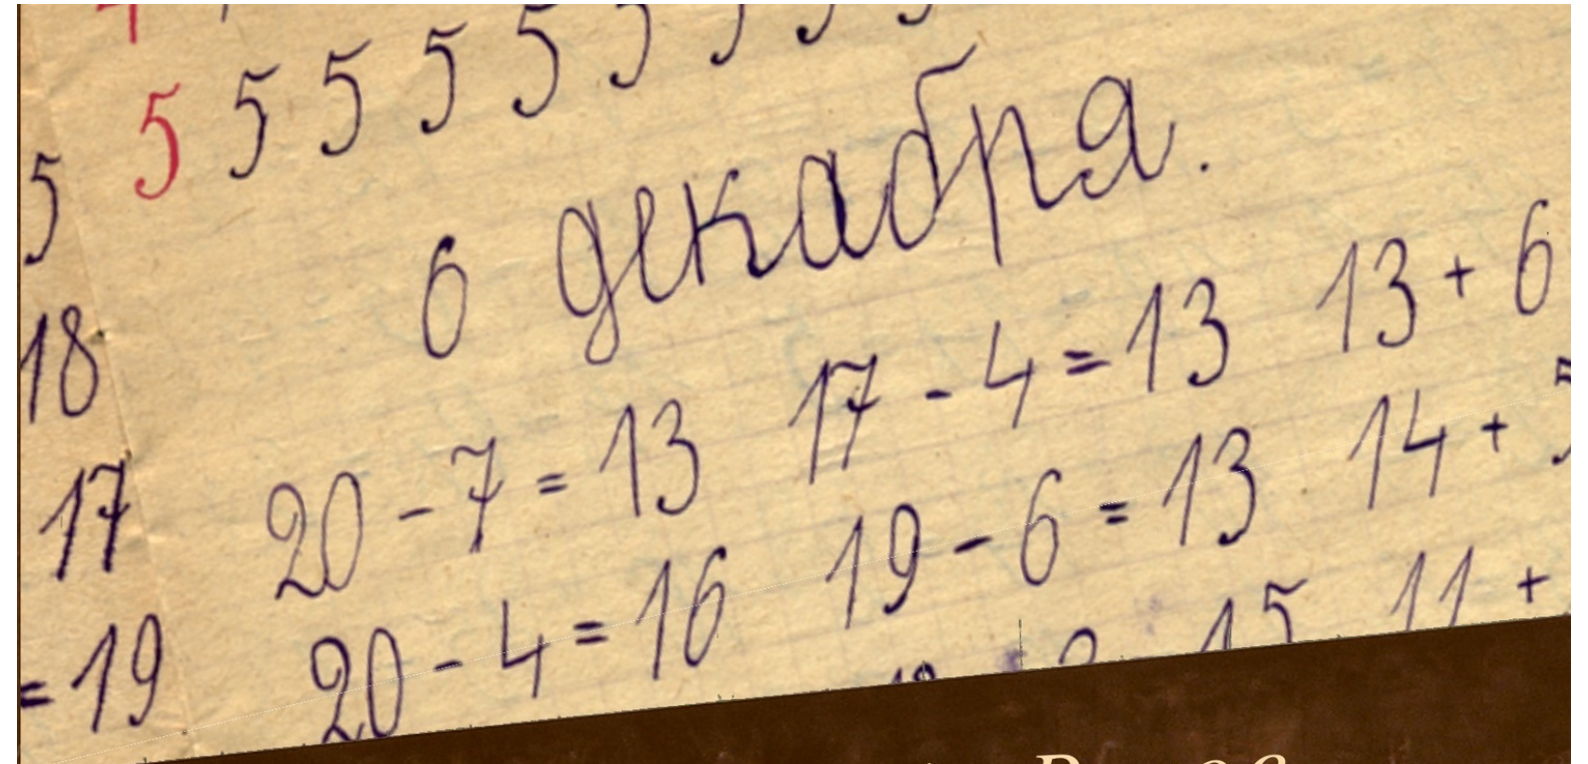 5 5 5 5 5 5 5 5 5 5
6 декабря.
18 20 - 7 = 13 17 - 4 = 13 13 + 6
17 20 - 4 = 16 19 - 6 = 13 14 + 5
= 19 15 11 +